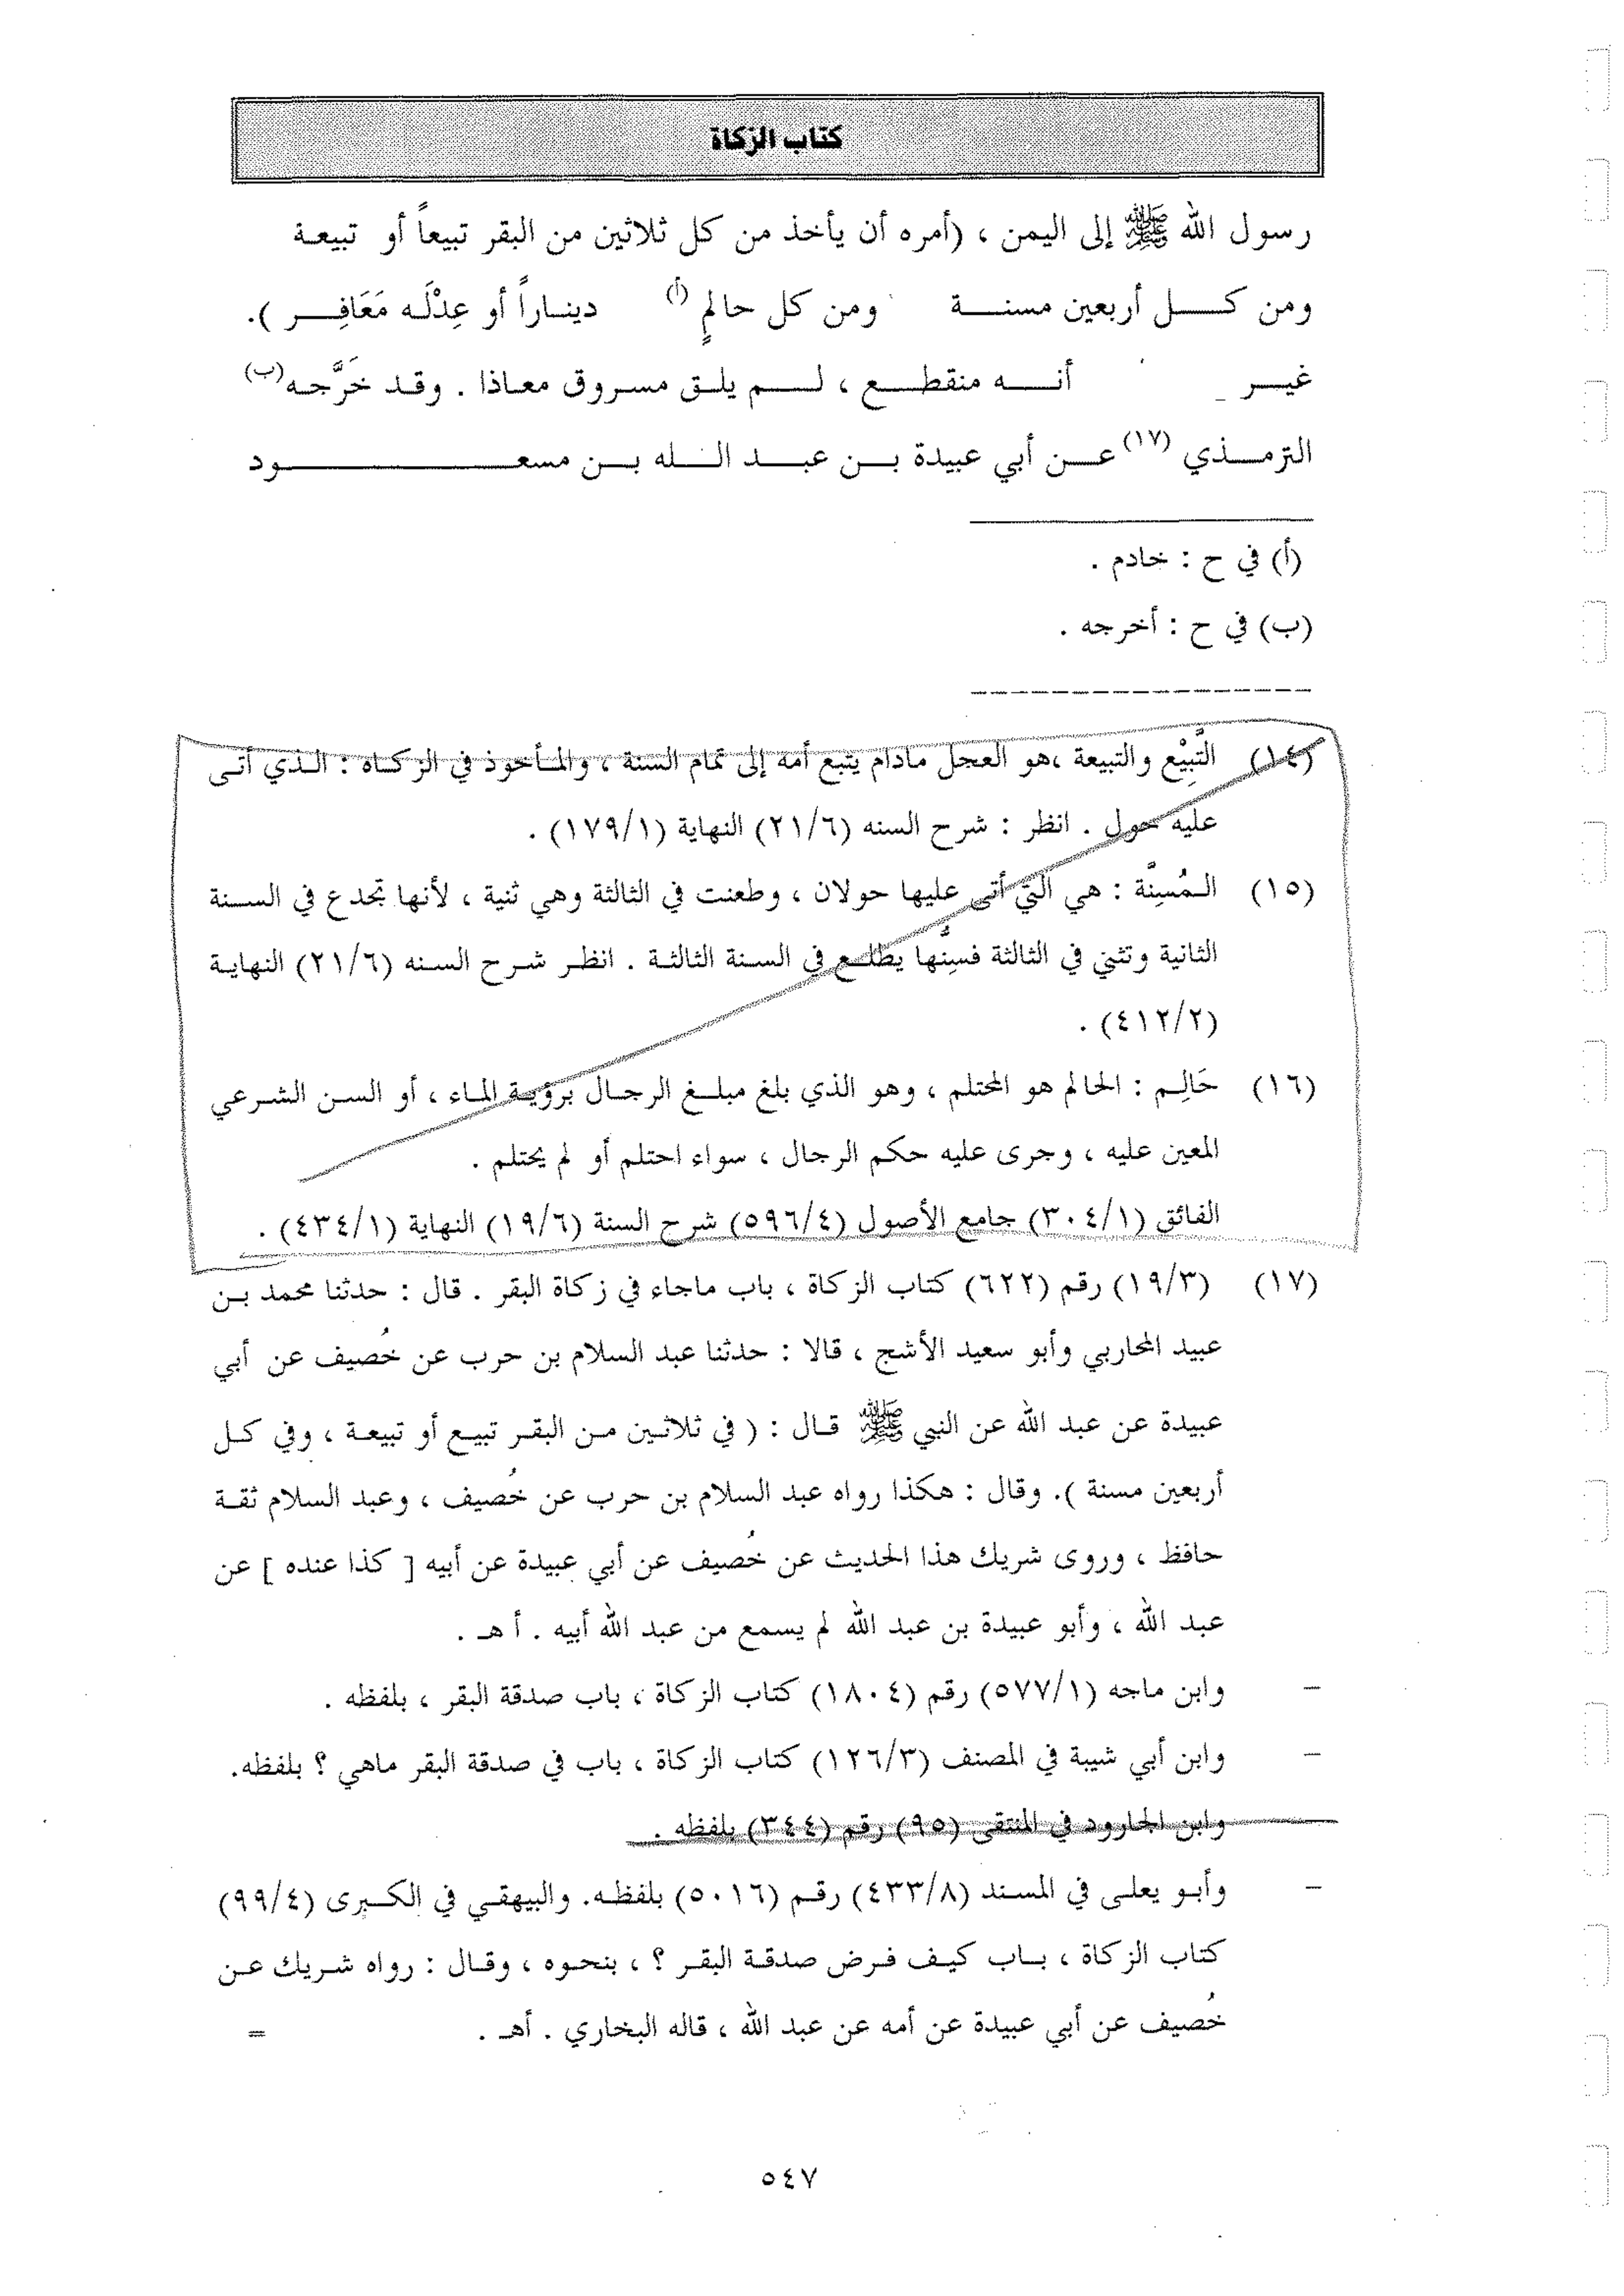 كتاب الزكاة
رسول الله ﷺ إلى اليمن ، (أمره أن يأخذ من كل ثلاثين من البقر تبيعاً أو تبيعة
ومن كل أربعين مسنة ومن كل حالمٍ (أ) ديناراً أو عِدْلَه مَعَافِر ).
غير أنه منقطع ، لم يلق مسروق معاذا . وقد خَرَّجه (ب)
الترمذي (١٧) عن أبي عبيدة بن عبد الله بن مسعود
(أ) في ح : خادم .
(ب) في ح : أخرجه .
(١٤) التَّبِيْع والتبيعة ،هو العجل مادام يتبع أمه إلى تمام السنة ، والمأخوذ في الزكاه : الذي أتى
عليه حول . انظر : شرح السنه (٢١/٦) النهاية (١٧٩/١) .
(١٥) المُسِنَّة : هي التي أتى عليها حولان ، وطعنت في الثالثة وهي ثنية ، لأنها تجدع في السنة
الثانية وتثني في الثالثة فسِنُّها يطلع في السنة الثالثة . انظر شرح السنه (٢١/٦) النهاية
(٤١٢/٢) .
(١٦) حَالِم : الحالم هو المحتلم ، وهو الذي بلغ مبلغ الرجال برؤية الماء ، أو السن الشرعي
المعين عليه ، وجرى عليه حكم الرجال ، سواء احتلم أو لم يحتلم .
الفائق (٣٠٤/١) جامع الأصول (٥٩٦/٤) شرح السنة (١٩/٦) النهاية (٤٣٤/١) .
(١٧) (١٩/٣) رقم (٦٢٢) كتاب الزكاة ، باب ماجاء في زكاة البقر . قال : حدثنا محمد بن
عبيد المحاربي وأبو سعيد الأشج ، قالا : حدثنا عبد السلام بن حرب عن خُصيف عن أبي
عبيدة عن عبد الله عن النبي ﷺ قال : ( في ثلاثين من البقر تبيع أو تبيعة ، وفي كل
أربعين مسنة ). وقال : هكذا رواه عبد السلام بن حرب عن خُصيف ، وعبد السلام ثقة
حافظ ، وروى شريك هذا الحديث عن خُصيف عن أبي عبيدة عن أبيه [ كذا عنده ] عن
عبد الله ، وأبو عبيدة بن عبد الله لم يسمع من عبد الله أبيه . أ هـ .
– وابن ماجه (٥٧٧/١) رقم (١٨٠٤) كتاب الزكاة ، باب صدقة البقر ، بلفظه .
– وابن أبي شيبة في المصنف (١٢٦/٣) كتاب الزكاة ، باب في صدقة البقر ماهي ؟ بلفظه.
وابن الجارود في المنتقى (٩٥) رقم (٣٤٤) بلفظه .
– وأبو يعلى في المسند (٤٣٣/٨) رقم (٥٠١٦) بلفظه. والبيهقي في الكبرى (٩٩/٤)
كتاب الزكاة ، باب كيف فرض صدقة البقر ؟ ، بنحوه ، وقال : رواه شريك عن
خُصيف عن أبي عبيدة عن أمه عن عبد الله ، قاله البخاري . أهـ . =
٥٤٧